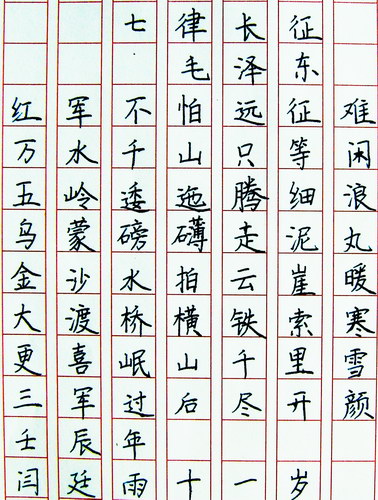 七律长征
毛泽东
红军不怕远征难
万水千山只等闲
五岭逶迤腾细浪
乌蒙磅礴走泥丸
金沙水拍云崖暖
大渡桥横铁索寒
更喜岷山千里雪
三军过后尽开颜
壬辰年
闫廷雨十一岁